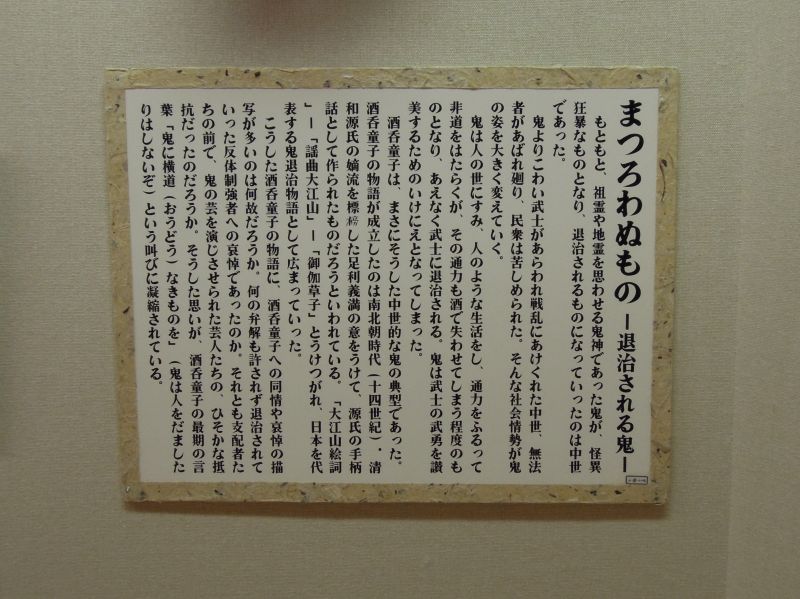 まつろわぬもの ー退治される鬼ー
もともと、祖霊や地霊を思わせる鬼神であった鬼が、怪異
狂暴なものとなり、退治されるものになっていったのは中世
であった。
鬼よりこわい武士があらわれ戦乱にあけくれた中世、無法
者があばれ廻り、民衆は苦しめられた。そんな社会情勢が鬼
の姿を大きく変えていく。
鬼は人の世にすみ、人のような生活をし、通力をふるって
非道をはたらくが、その通力も酒で失わせてしまう程度のも
のとなり、あえなく武士に退治される。鬼は武士の武勇を讃
美するためのいけにえとなってしまった。
酒呑童子は、まさにそうした中世的な鬼の典型であった。
酒呑童子の物語が成立したのは南北朝時代(十四世紀)。清
和源氏の嫡流を標榜した足利義満の意をうけて、源氏の手柄
話として作られたものだろうといわれている。「大江山絵詞
」ー「謡曲大江山」ー「御伽草子」とうけつがれ、日本を代
表する鬼退治物語として広まっていった。
こうした酒呑童子の物語に、酒呑童子への同情や哀悼の描
写が多いのは何故だろうか。何の弁解も許されず退治されて
いった反体制強者への哀悼であったのか。それとも支配者た
ちの前で、鬼の芸を演じさせられた芸人たちの、ひそかな抵
抗だったのだろうか。そうした思いが、酒呑童子の最期の言
葉「鬼に横道(おうどう)なきものを」(鬼は人をだました
りはしないぞ)という叫びに凝縮されている。